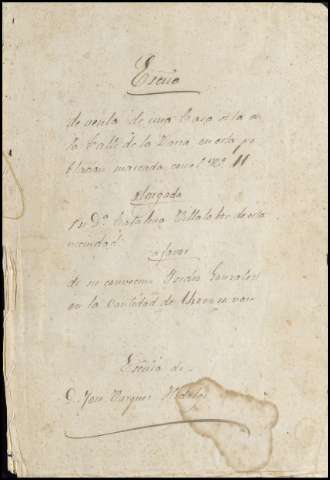 Escra
de venta de una Casa sita en
la Calle de la en esta po
blacion marcada con el Nº 11
otorgada
Por Dª Catalina Villalobos de esta
vecindad
a favor
de su convecino Gonzalez
en la Cantidad de
Escria de
D. Jose Vazquez